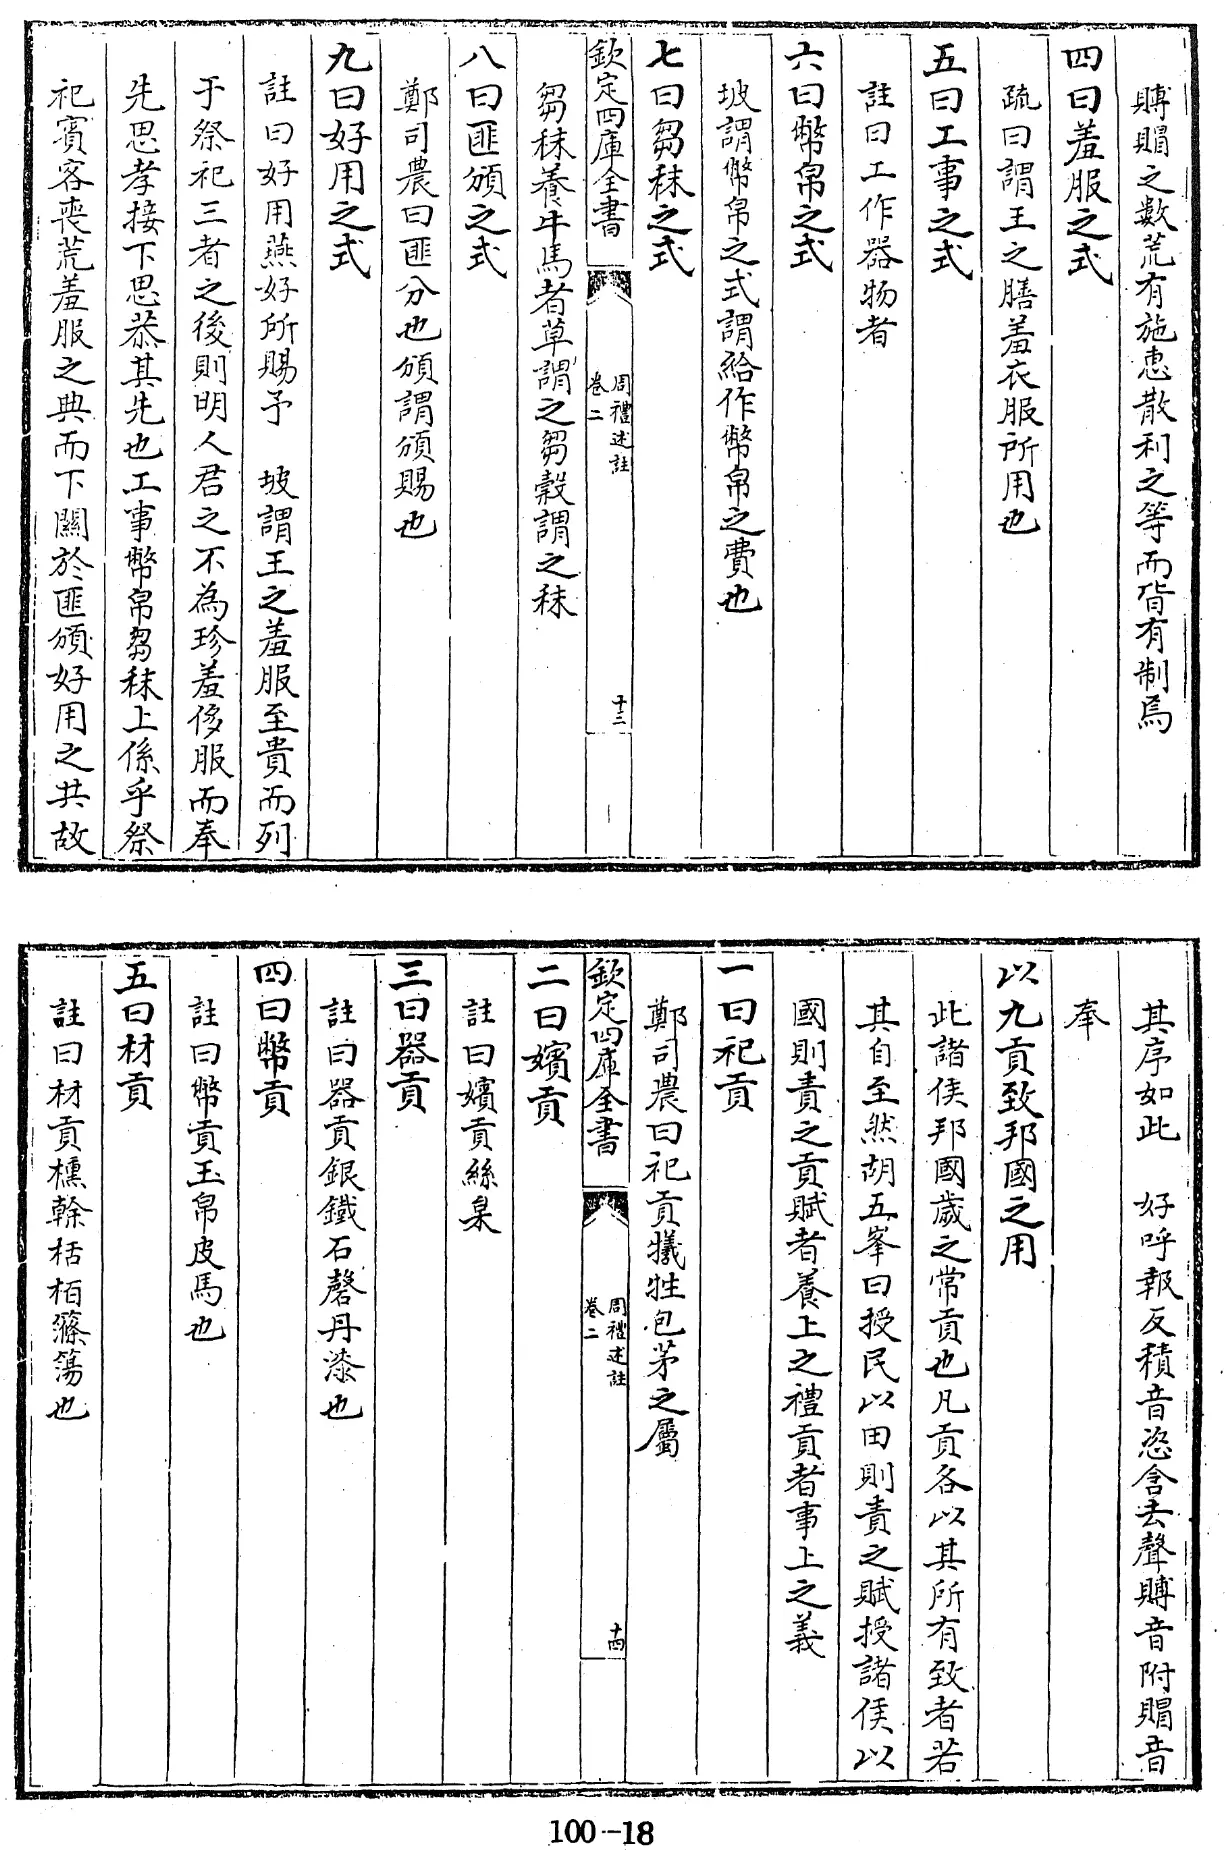 賻賵之數荒有施惠散利之等而皆有制焉
四曰羞服之式
疏曰謂王之膳羞衣服所用也
五曰工事之式
註曰工作器物者
六曰幣帛之式
坡謂幣帛之式謂給作幣帛之費也
七曰芻秣之式
欽定四庫全書
周禮述註
卷二
十三
芻秣養牛馬者草謂之芻穀謂之秣
八曰匪頒之式
鄭司農曰匪分也頒謂頒賜也
九曰好用之式
註曰好用燕好所賜予 坡謂王之羞服至貴而列
于祭祀三者之後則明人君之不為珍羞侈服而奉
先思孝接下思恭其先也工事幣帛芻秣上係乎祭
祀賓客喪荒羞服之典而下關於匪頒好用之共故
其序如此 好呼報反積音恣含去聲賻音附賵音
奉
以九貢致邦國之用
此諸侯邦國歲之常貢也凡貢各以其所有致者若
其自至然胡五峯曰授民以田則責之賦授諸侯以
國則責之貢賦者養上之禮貢者事上之義
一曰祀貢
鄭司農曰祀貢犧牲包茅之屬
欽定四庫全書
周禮述註
卷二
十四
二曰嬪貢
註曰嬪貢絲枲
三曰器貢
註曰器貢銀鐵石磬丹漆也
四曰幣貢
註曰幣貢玉帛皮馬也
五曰材貢
註曰材貢櫄榦栝柏篠簜也
100-18